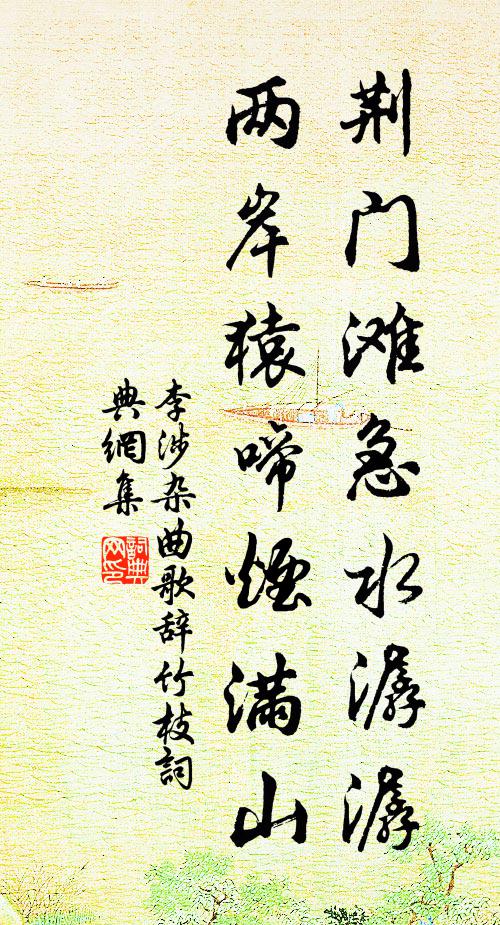 荆门滩急水潺潺
两岸猿啼烟满山
李涉杂曲歌辞竹枝詞
典網集
詞典网印